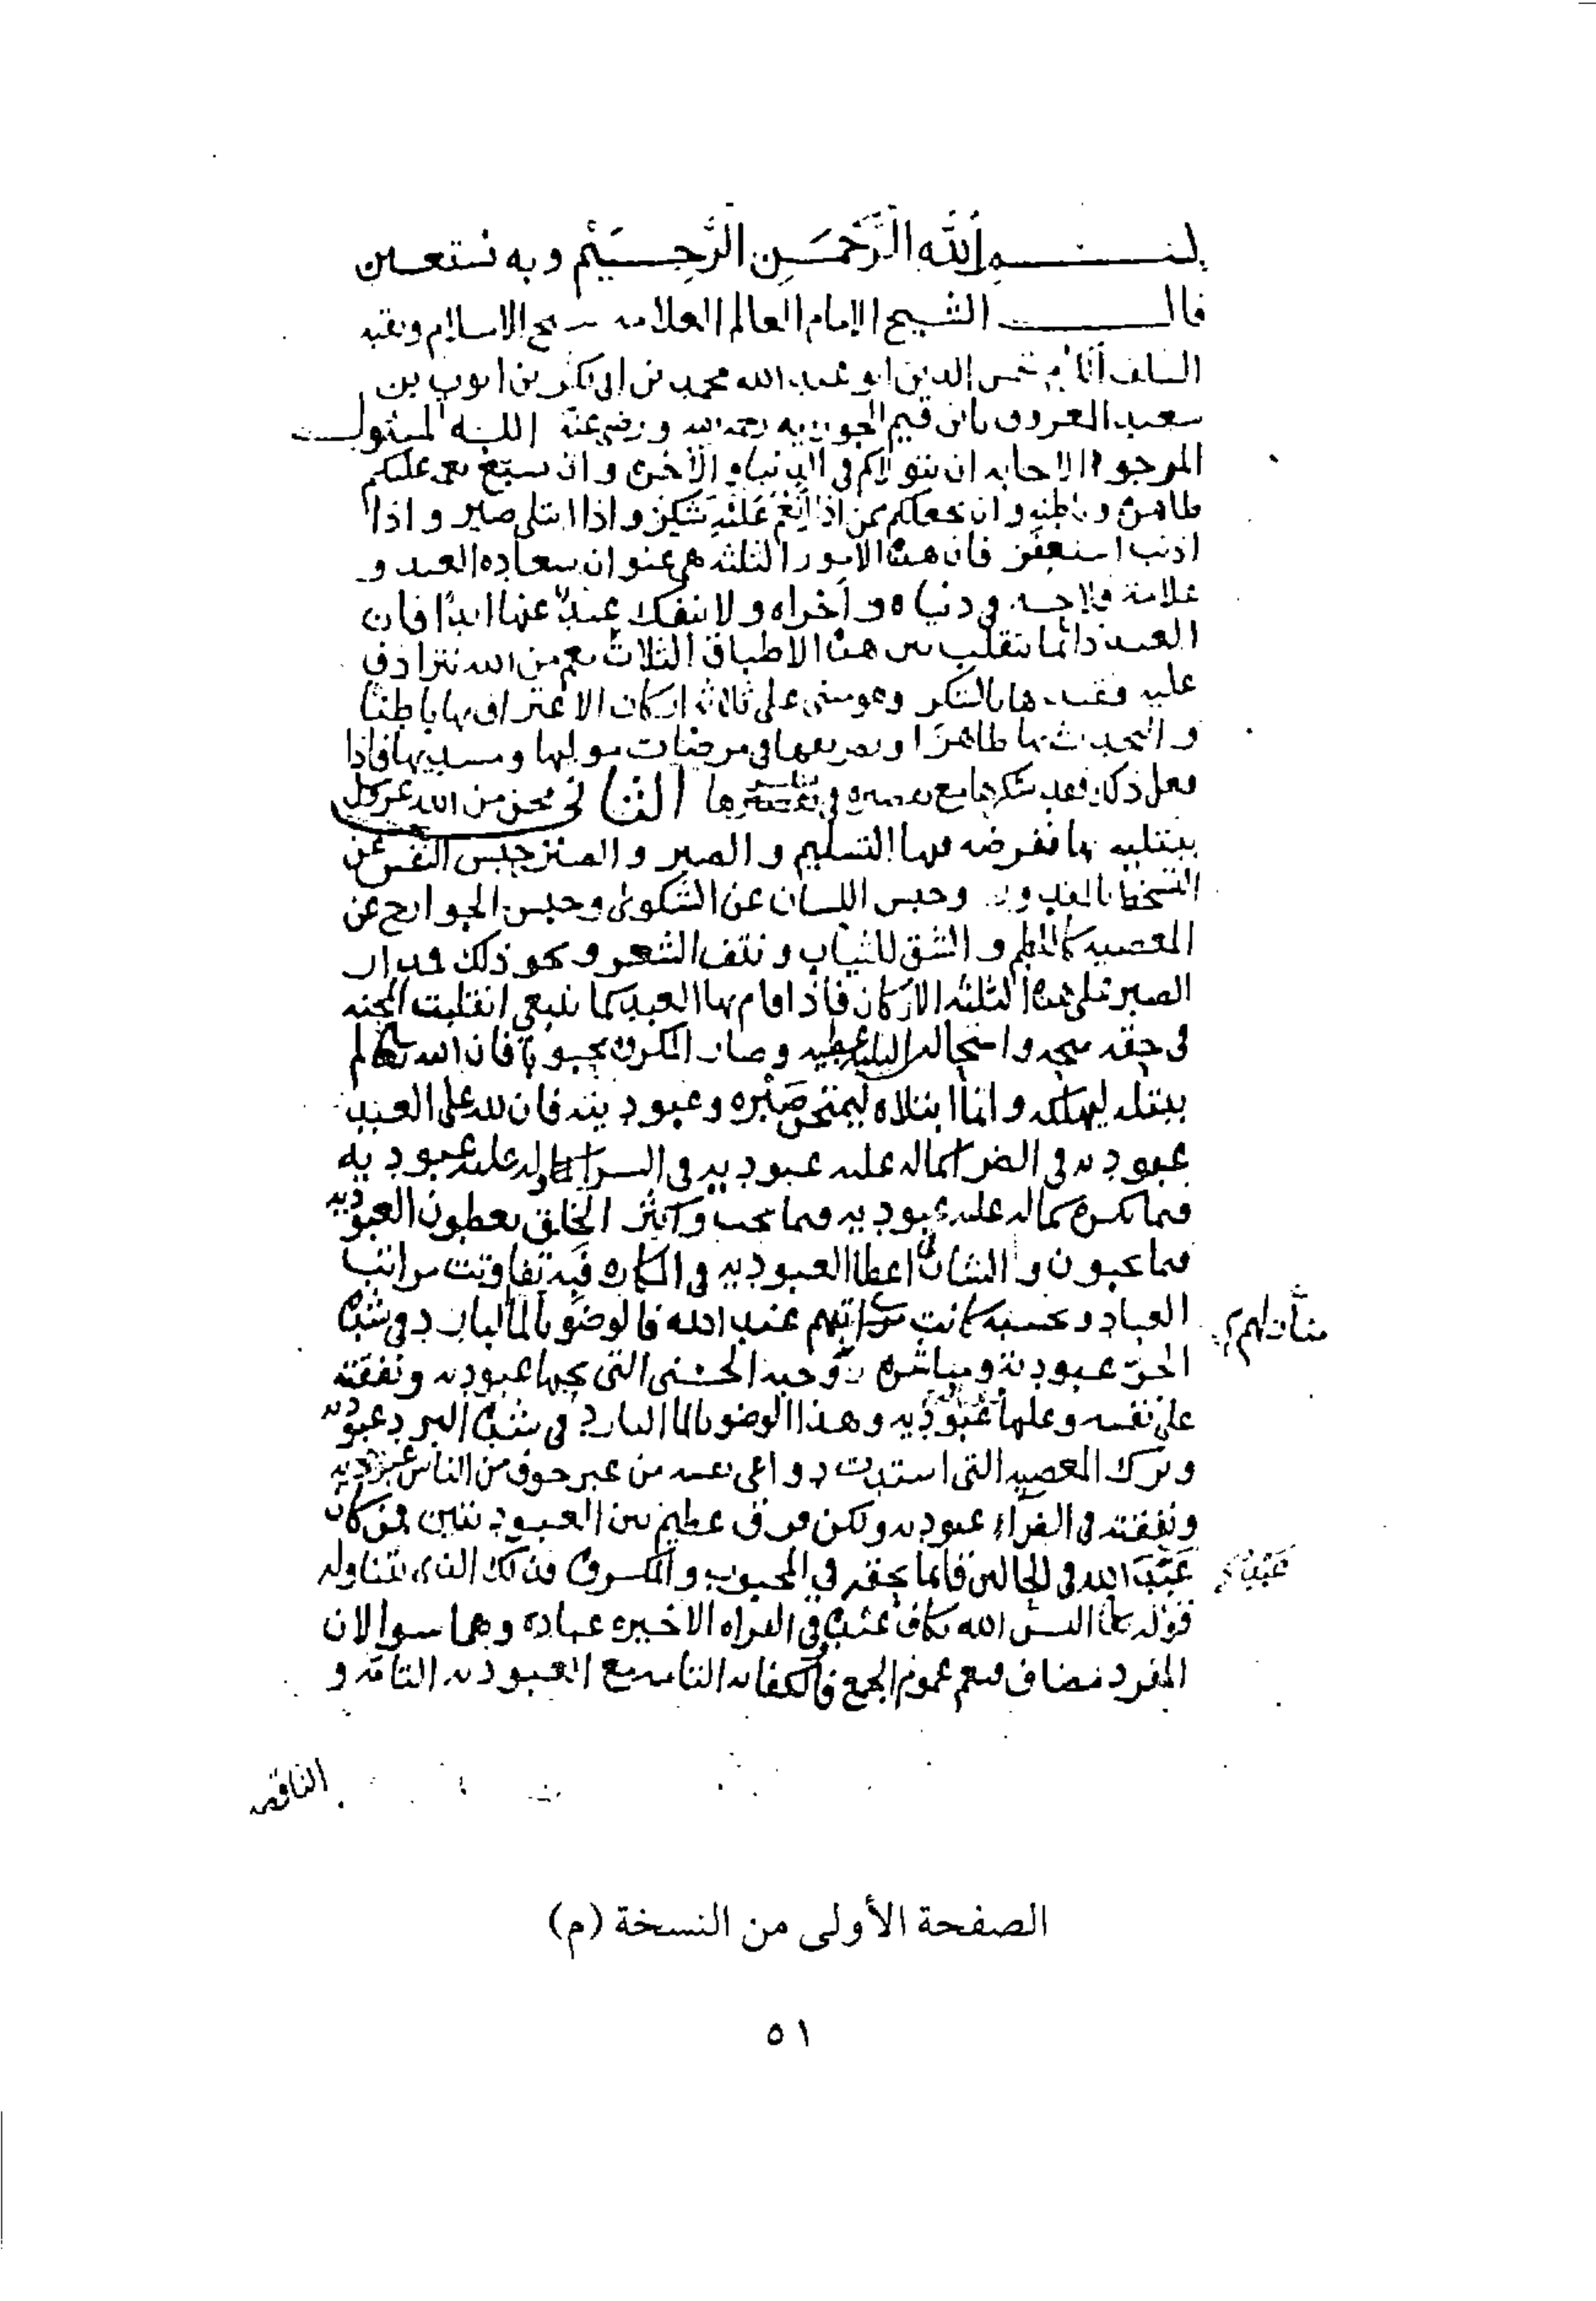 بسم اللَّه الرَّحمَنِ الرَّحِيمِ وبه نستعين
قال الشيخ الإمام العالم العلامه شيخ الاسلام وبقيه
السلف شمس الدين ابو عبد الله محمد بن ابى بكر بن ايوب بن
سعيد المعروف بابن قيم الجوزيه رحمه الله ورضى عنه الله المسئول
المرجو الاجابه ان يتولاكم فى الدنيا والأخرى وان يسبغ نعمه عليكم
ظاهرة وباطنه وان يجعلكم ممن اذا أنعم عليه شكر واذا ابتلى صبر واذا
اذنب استغفر فان هذه الامور الثلثه هى عنوان سعاده العبد و
علامة فلاحه فى دنياه وأخراه ولا ينفك عبد عنها ابدًا فان
العبد دائما يتقلب بين هذه الاطباق الثلاث نعم من الله تترادف
عليه فقيدها بالشكر وهو مبنى على ثلاثه اركان الاعتراف بها باطنًا
والتحدث بها ظاهرًا وتصريفها فى مرضات موليها ومسديها فاذا
فعل ذلك فقد شكرها مع تقصيره فى شكرها الثانى محن من الله عز وجل
يبتليه بها ففرضه فيها التسليم والصبر والصبر حبس النفس عن
التسخط بالمقدور وحبس اللسان عن الشكوى وحبس الجوارح عن
المعصيه كاللطم والشق للثياب ونتف الشعر ونحو ذلك فمدار
الصبر على هذه الثلثه الاركان فاذا قام بها العبد كما ينبغى انقلبت المحنه
فى حقه منحه واستحالت البليه عطيه وصار المكروه محبوبًا فان الله تعالى لم
يبتله ليهلكه وانما ابتلاه ليمتحن صَبْره وعبوديته فان لله على العبد
عبوديه فى الضراء كما له عليه عبوديه فى السراء وله عليه عبوديه
فيما يكره كما له عليه عبوديه فيما يحب واكثر الخلق يعطون العبوديه
فيما يحبون والشان فى اعطا العبوديه فى المكاره فبه تفاوتت مراتب
العباد وبحسبه كانت منازلهم عند الله فالوضو بالما البارد فى شدة
الحر عبودية ومباشرة زوجته الحسنى التى يحبها عبوديه ونفقته
على نفسه وعليها عبوديه وهذا الوضو بالما البارد فى شدة البرد عبوديه
وترك المعصيه التى استدت دواعى نفسه من غير خوف من الناس عبوديه
ونفقته فى الضرآء عبوديه ولكن فرق عظيم بين العبوديتين فمن كان
عَبْدَ الله فى الحالين قائما بحقه فى المحبوب والمكروه فذلك الذى يتناوله
قوله تعالى اليس الله بكاف عبده وفى القراه الاخيره عباده وهما سوا لان
المفرد مضاف فيعم عموم الجمع فالكفايه التامه مع العبوديه التامّة و
منازلهم
عَبْدًا
الناقصه
الصفحة الأولى من النسخة (م)
٥١